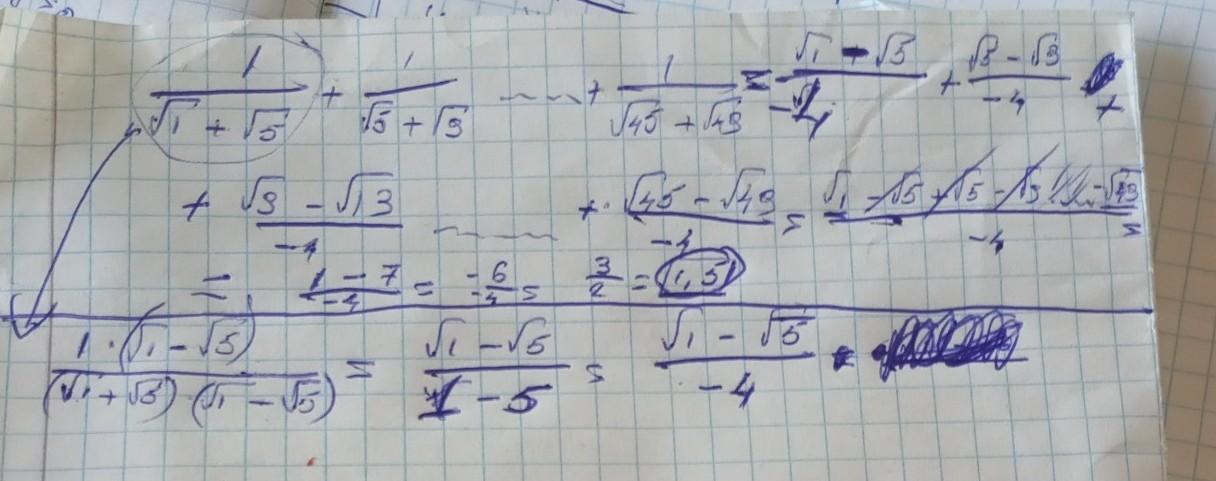 1/(√1 + √5) + 1/(√5 + √9) ... + 1/(√45 + √49) = (√1 - √5)/(-4) + (√5 - √9)/(-4) +
+ (√9 - √13)/(-4) ... + (√45 - √49)/(-4) = (√1 - √5 + √5 - √9 ... - √49)/(-4) =
= (1 - 7)/(-4) = (-6)/(-4) = 3/2 = 1,5
(1 · (√1 - √5))/((√1 + √5) · (√1 - √5)) = (√1 - √5)/(1 - 5) = (√1 - √5)/(-4)